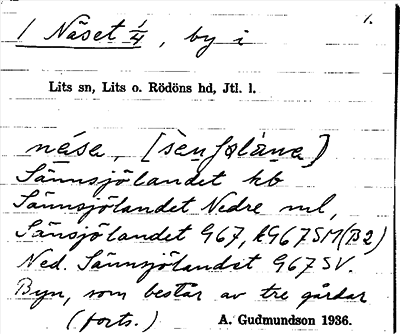 1 Näset 1/4, by i
1.
Lits sn, Lits o. Rödöns hd, Jtl. l.
nésa, [sènʃølàna]
Sännsjölandet hb
Sännsjölandet Nedre ml,
Sänsjölandet G67, AG67SM(B2)
Ned. Sännsjölandet G67SV.
Byn, som består av tre gårdar
(forts.) A. Gudmundson 1936.